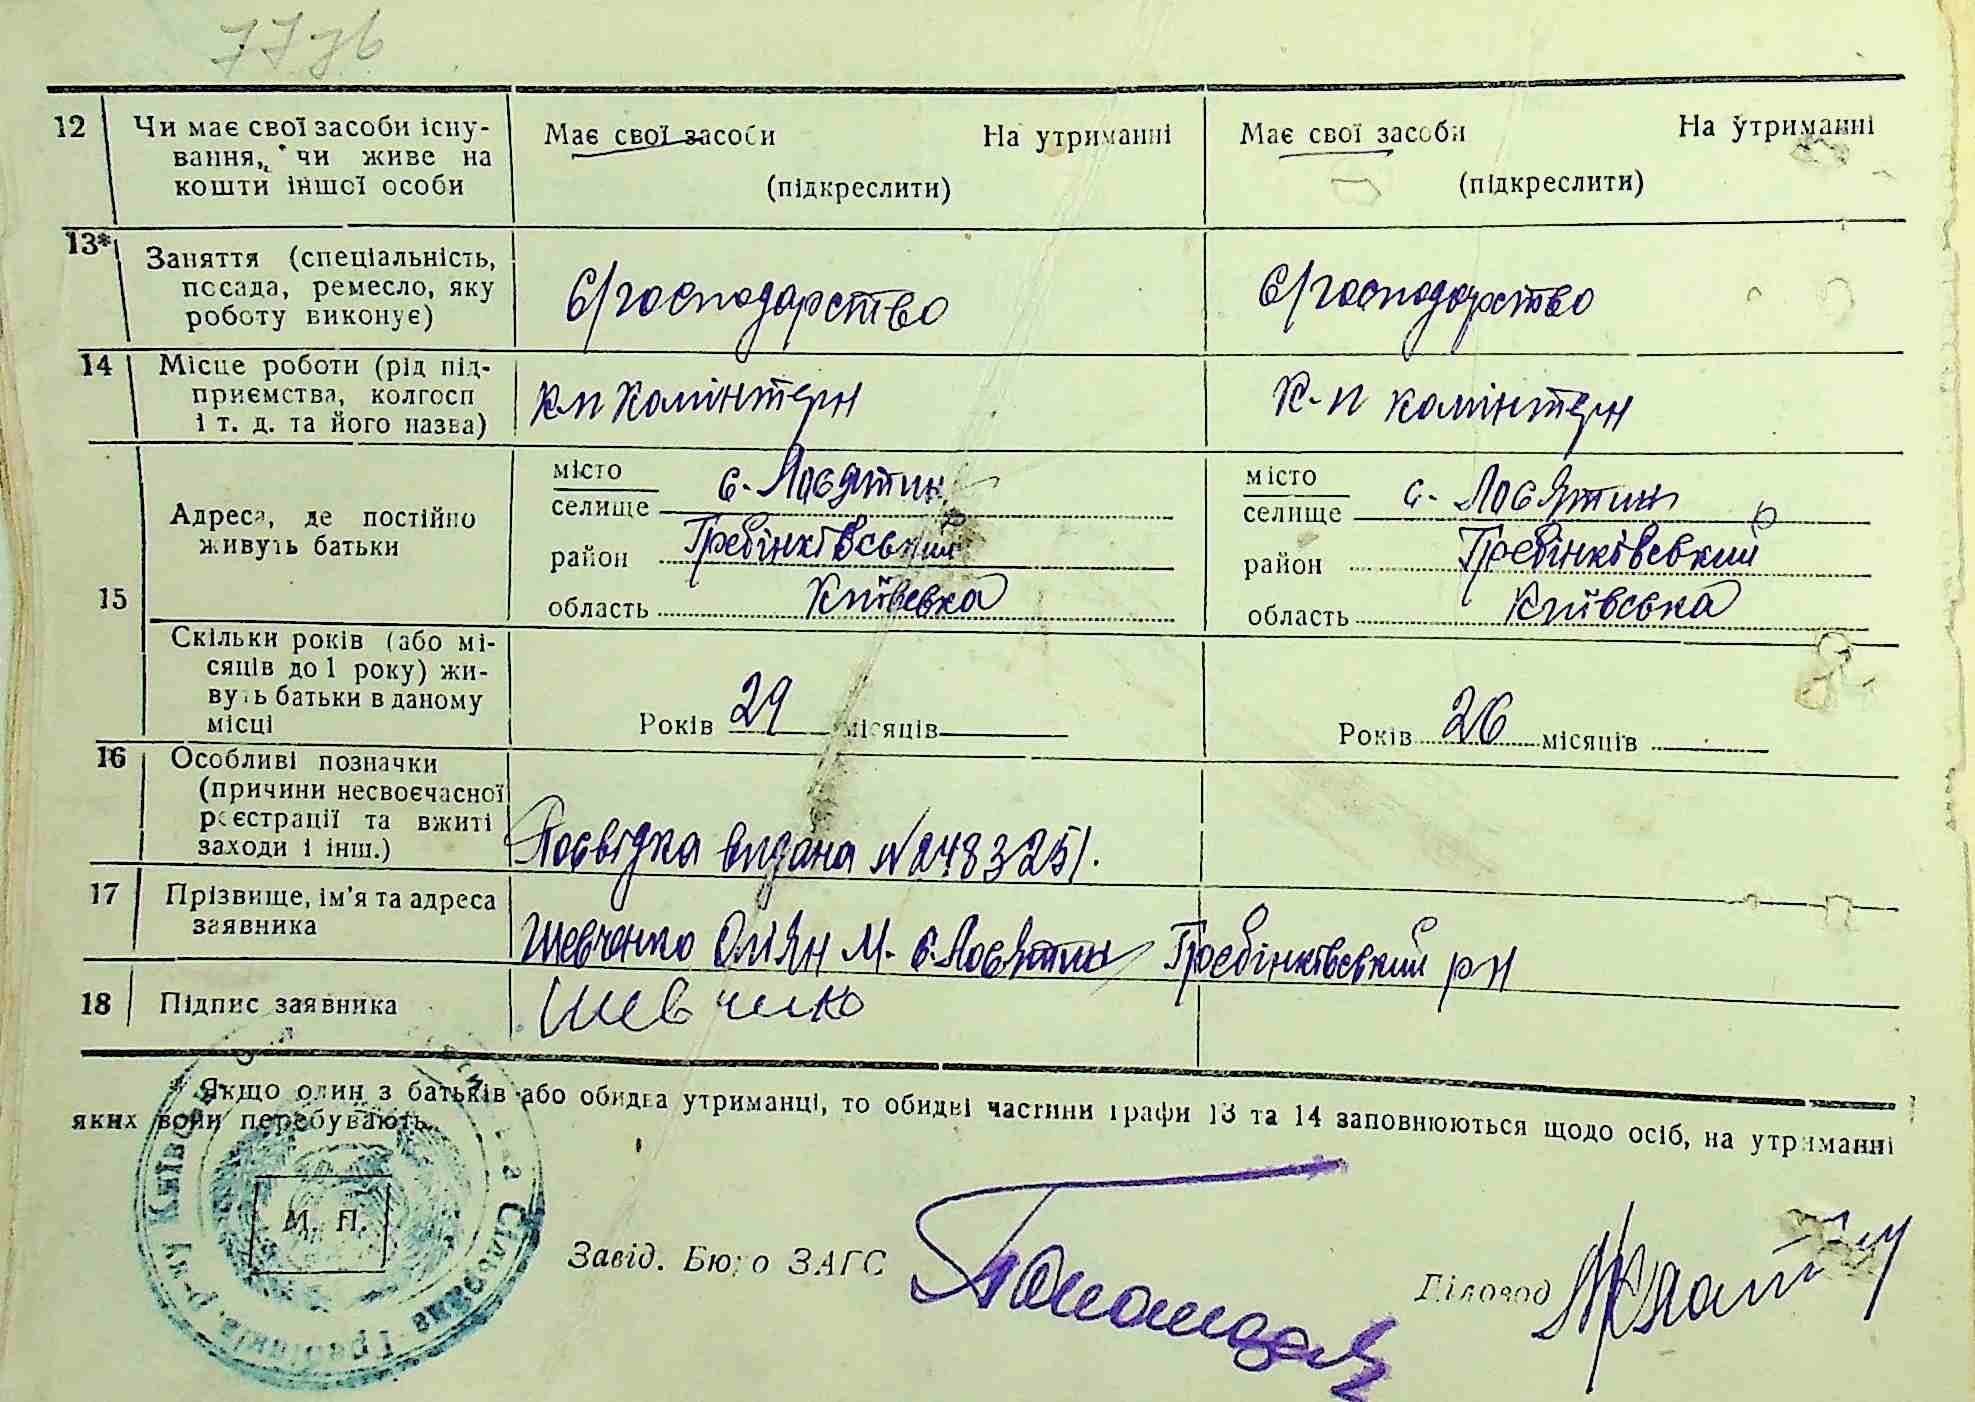 12 Чи має свої засоби існу-
вання, чи живе на
кошти іншої особи
Має свої засоби На утриманні
(підкреслити)
Має свої засоби На утриманні
(підкреслити)
13* Заняття (спеціальність,
посада, ремесло, яку
роботу виконує)
С/господарство
С/господарство
14 Місце роботи (рід під-
приємства, колгосп
і т. д. та його назва)
к-п Комінтерн
К-п Комінтерн
15 Адреса, де постійно
живуть батьки
місто
селище с. Лосятин
район Гребінківський
область Київська
місто
селище с. Лосятин
район Гребінківський
область Київська
Скільки років (або мі-
сяців до 1 року) жи-
вуть батьки в даному
місці
Років 29 місяців
Років 26 місяців
16 Особливі позначки
(причини несвоєчасної
реєстрації та вжиті
заходи і інш.)
Посвідка видана №248325/.
17 Прізвище, ім'я та адреса
заявника
Шевченко М. с. Лосятин Гребінківський рн
18 Підпис заявника
Шевченко
* Якщо один з батьків або обидва утриманці, то обидві частини графи 13 та 14 заповнюються щодо осіб, на утриманні
яких вони перебувають.
М. П.
Завід. Бюро ЗАГС
Діловод